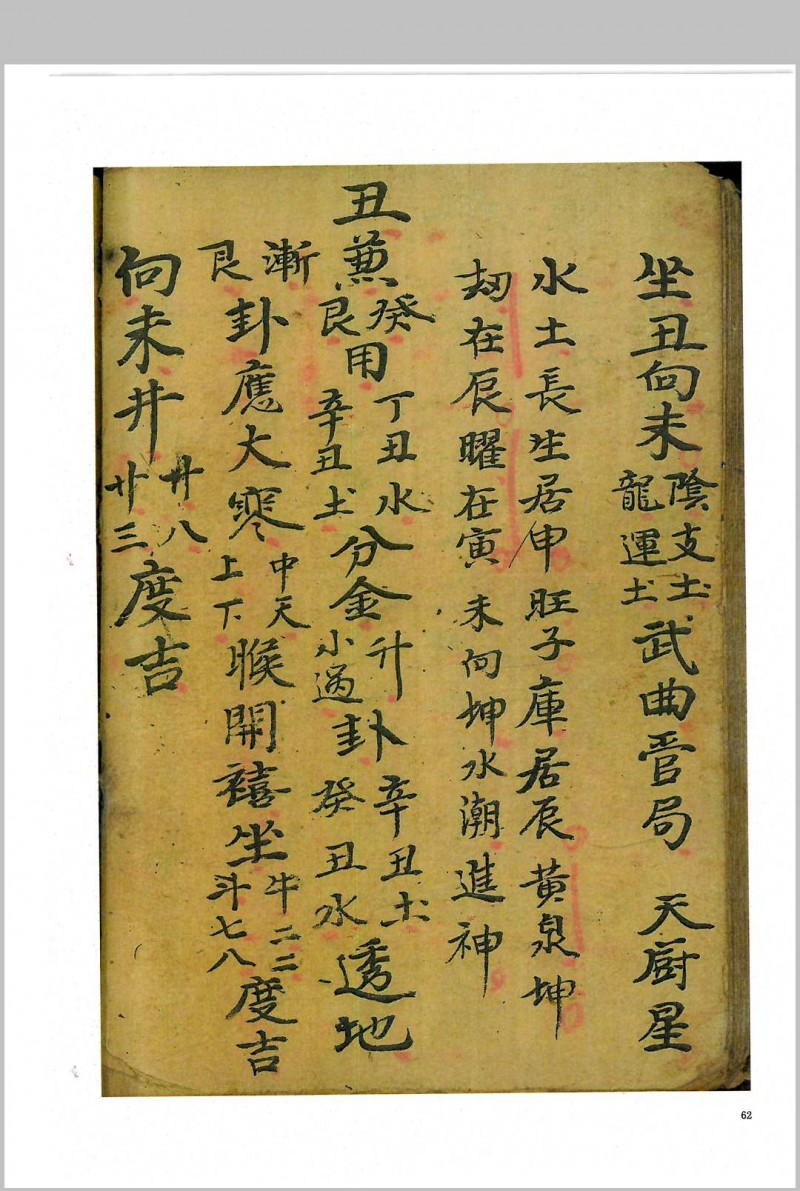 坐丑向未陰支土龍運土武曲管局 天廚星
水土長生居申旺子庫居辰黃泉坤
刼在辰曜在寅 未向坤水潮進神
丑兼癸艮用丁丑水辛丑土分金升小過卦辛丑土癸丑水透地
漸艮卦應大寒中天上下睺開禧坐牛二二斗七八度吉
向未井廿八廿三度吉
62